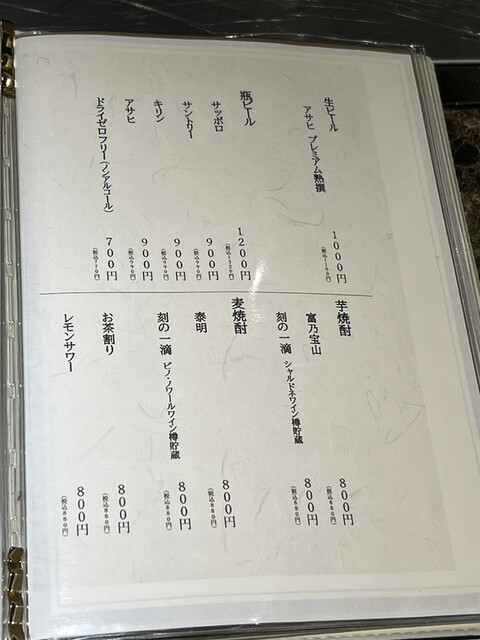 生ビール
アサヒ プレミアム熟撰 1000円
(税込1100円)
瓶ビール
サッポロ 1200円
(税込1320円)
サントリー 900円
(税込990円)
キリン 900円
(税込990円)
アサヒ 900円
(税込990円)
ドライゼロフリー(ノンアルコール) 700円
(税込770円)
芋焼酎
富乃宝山 800円
(税込880円)
刻の一滴 シャルドネワイン樽貯蔵 800円
(税込880円)
麦焼酎
泰明 800円
(税込880円)
刻の一滴 ピノ・ノワールワイン樽貯蔵 800円
(税込880円)
お茶割り 800円
(税込880円)
レモンサワー 800円
(税込880円)